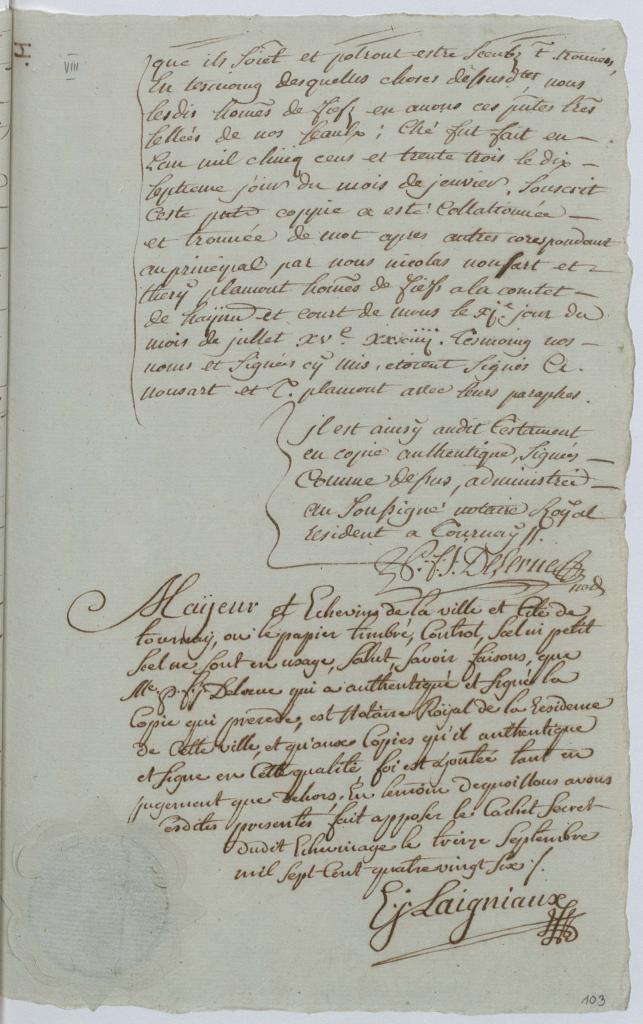 VIII
que ils soiēt et polront estre sceubz et trouuéz,
En tesmoing desquelles choses dessusdtes, nous
lesdis homēs de fiefz en auons ces pntes lrēs
sellées de nos seaulx; Ché fut fait en
Lan mil chincq cens et trente trois le dix –
septieme jour du mois de jenvier. Souscrit
Ceste pnte coppie a esté Collationnée –
et trouuée de mot apres autres corespondant
au principal par nous nicolas nousart et –
thery plamont homēs de fiefs a la comtet –
de haynnu et court de mons le xj.e jour du
mois de jullet xv.c xxxiiij. Tesmoing nos –
noms et signés cy mis, etoient signés
nousart et T. plamont avec leurs paraphes.
jl est ainsy audit testament
en copie authentique, signée –
Comme dessus, administrée –
au soussigné notaire Royal
resident a Tournay //.
P. f. j. Delerue
not.
Mayeur et Echevins de la ville et Cité de
tournay, ou le papier timbré, Control, Scel ni petit
Scel ne sont en usage, Salut, Savoir faisons, que
Me p. f. j. Delerue qui a authentiqué et signé la
Copie qui precede, est Notaire Royal de la Residence
de Cette ville, et qu'aux Copies qu'il authentique
et signe en Cette qualité, foi est ajoutée tant en
jugement que dehors. En temoin de quoi Nous avons
esdites presentes fait apposer le Cachet Secret
dudit Echevinage le treize Septembre
mil Sept Cent quatre vingt Six /.
E. j. Laigniaux
103